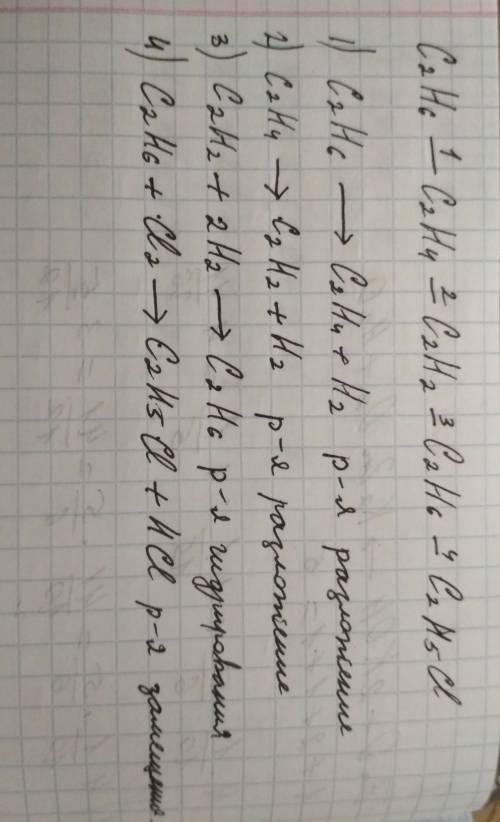 C2H6 —1 C2H4 —2 C2H2 —3 C2H6 —4 C2H5Cl
1) C2H6 → C2H4 + H2 р-я разложение
2) C2H4 → C2H2 + H2 р-я разложение
3) C2H2 + 2H2 → C2H6 р-я гидрирования
4) C2H6 + Cl2 → C2H5Cl + HCl р-я замещение